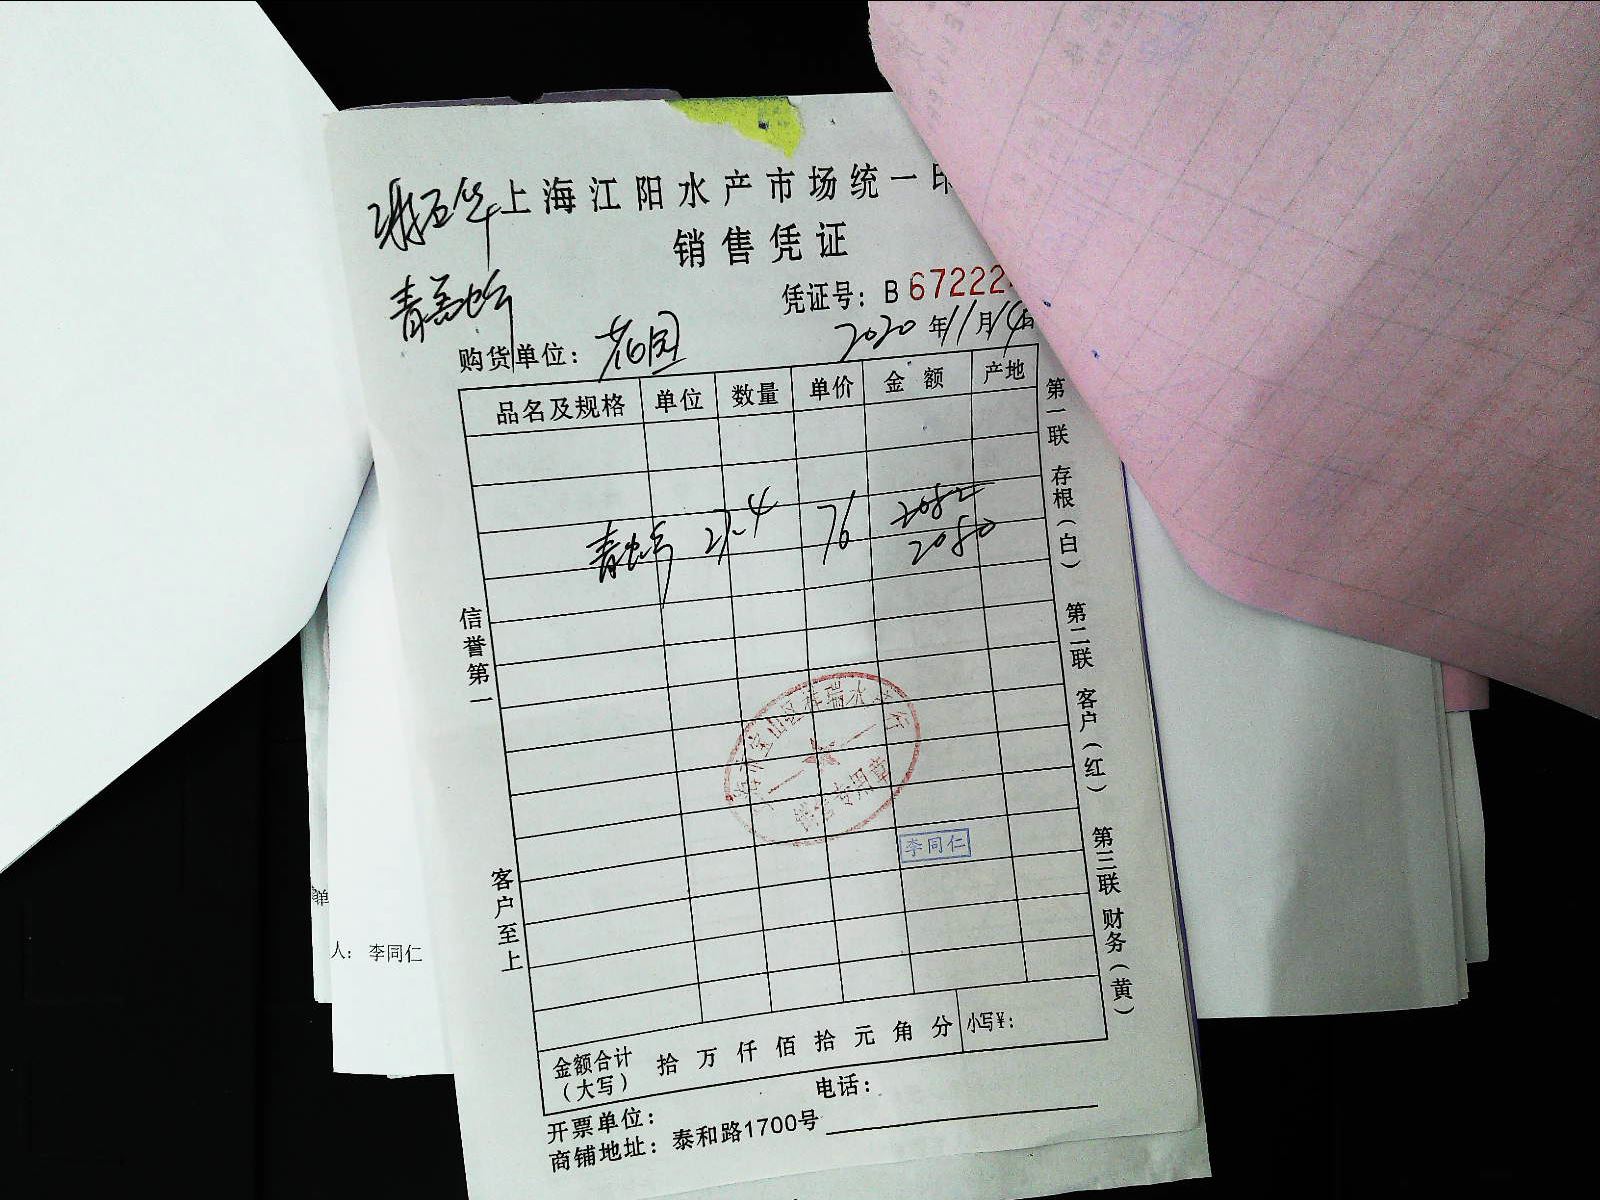 上海江阳水产市场统一印
销售凭证
凭证号：B 67222
购货单位：花园
2020年11月14日
品名及规格 单位 数量 单价 金额 产地
青虾 27.4 76 2082
2080
信誉第一
客户至上
第一联 存根（白） 第二联 客户（红） 第三联 财务（黄）
宝山区祥瑞水
销售专用章
李同仁
人：李同仁
金额合计（大写） 拾 万 仟 佰 拾 元 角 分 小写¥：
电话：
开票单位：
商铺地址：泰和路1700号